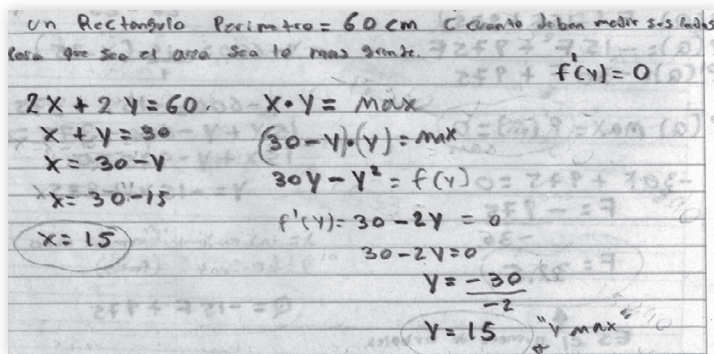 un Rectangulo Perimetro = 60 cm c cuanto deben medir sus lados
Para que sea el area sea lo mas grande.
f'(y) = 0
2x + 2y = 60.
x + y = 30
x = 30 - y
x = 30 - 15
x = 15
x • y = max
(30 - y) • (y) = max
30y - y² = f(y)
f'(y) = 30 - 2y = 0
30 - 2y = 0
y = -30
-2
y = 15 "y max"